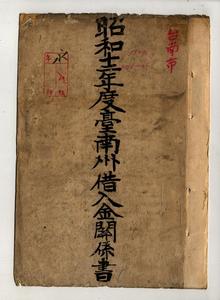 台南市
昭和十二年度臺南州借入金關係書
永